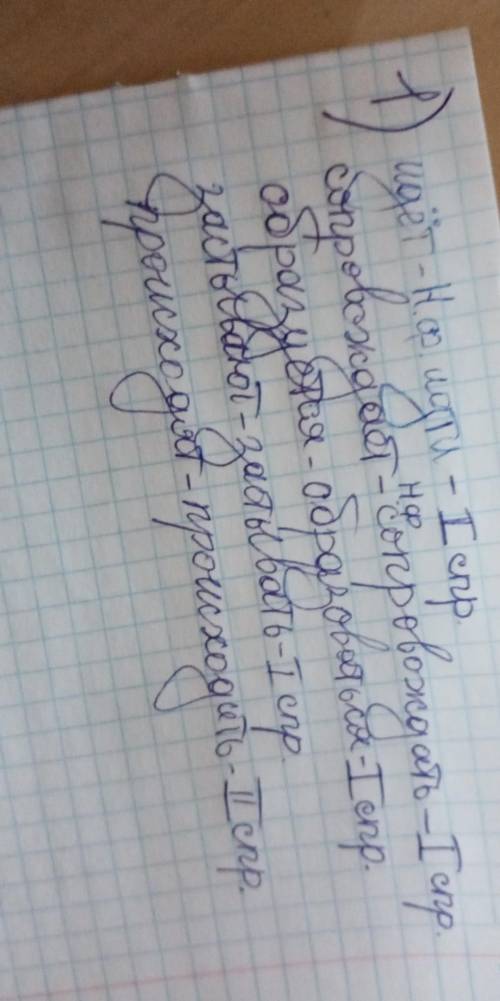 1) идёт - Н.ф. идти - I спр.
сопровождает - Н.ф сопровождать - I спр.
образуются - образоваться - I спр.
застывают - застывать - I спр.
происходят - происходить - II спр.